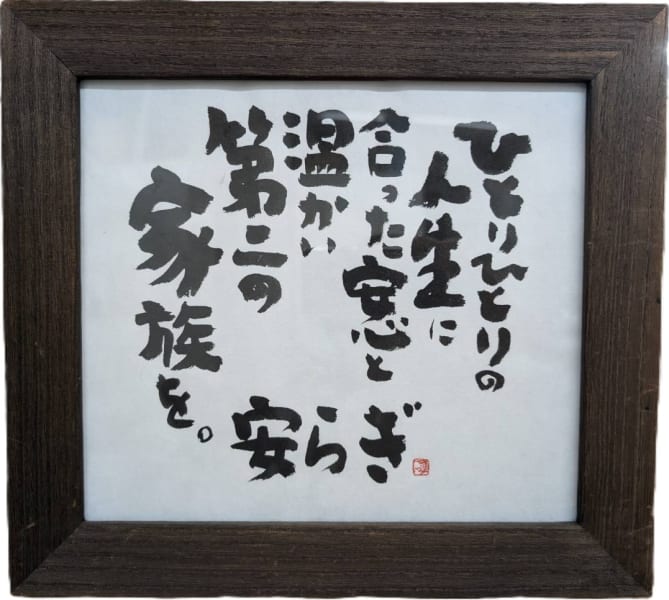 ひとりひとりの
人生に
合った安心と
安らぎ
温かい
第二の
家族を。